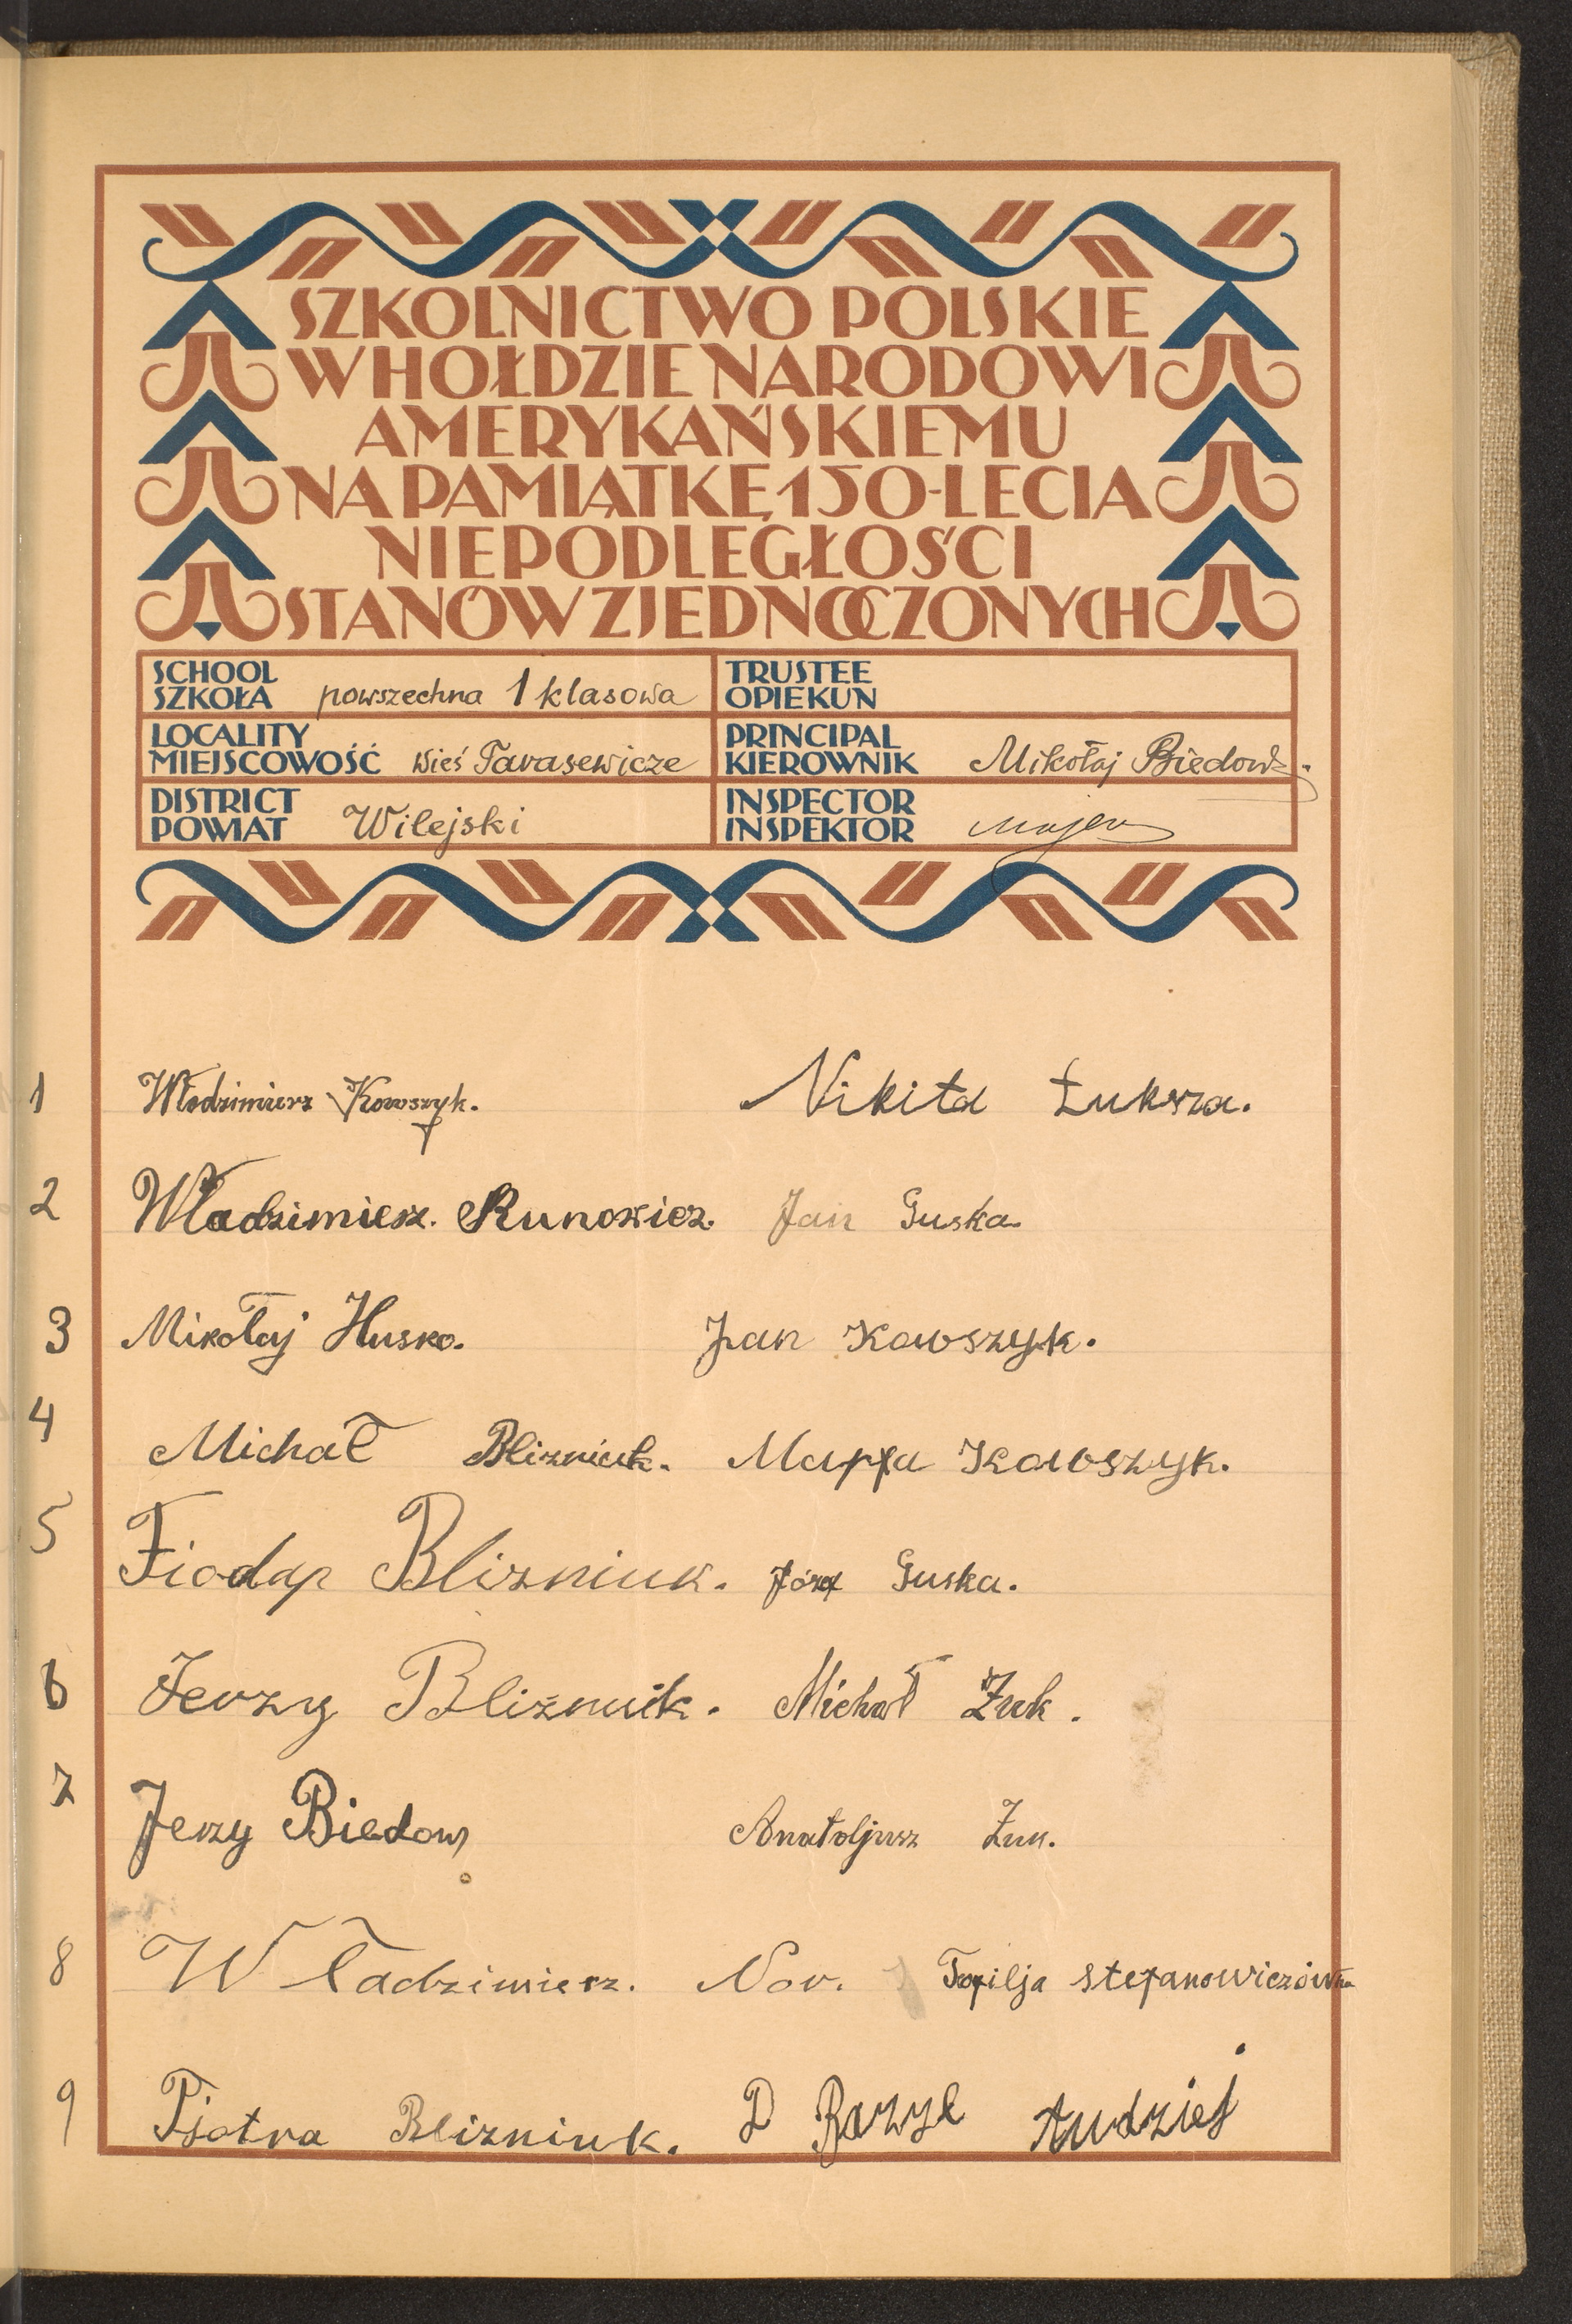 SZKOLNICTWO POLSKIE
W HOŁDZIE NARODOWI
AMERYKAŃSKIEMU
NA PAMIĄTKĘ 150-LECIA
NIEPODLEGŁOŚCI
STANÓW ZJEDNOCZONYCH
SCHOOL
SZKOŁA powszechna 1 klasowa
TRUSTEE
OPIEKUN
LOCALITY
MIEJSCOWOŚĆ wieś Tarasewicze
PRINCIPAL
KIEROWNIK Mikołaj Biedow
DISTRICT
POWIAT Wilejski
INSPECTOR
INSPEKTOR
1 Włodzimierz Kowszyk. Nikita Łuksza.
2 Władzimierz. Runowicz. Jan Guska.
3 Mikołaj Husko. Jan Kowszyk.
4 Michał Blizniuk. Marfa Kowszyk.
5 Fiodar Blizniuk. Józef Guska.
6 Jerzy Blizniuk. Michał Żuk.
7 Jerzy Biedow Anatoljusz Żuk.
8 Władzimierz. Nov. Tofilja Stefanowiczówna
9 Pjotra Blizniuk. D Bazyl Audziej